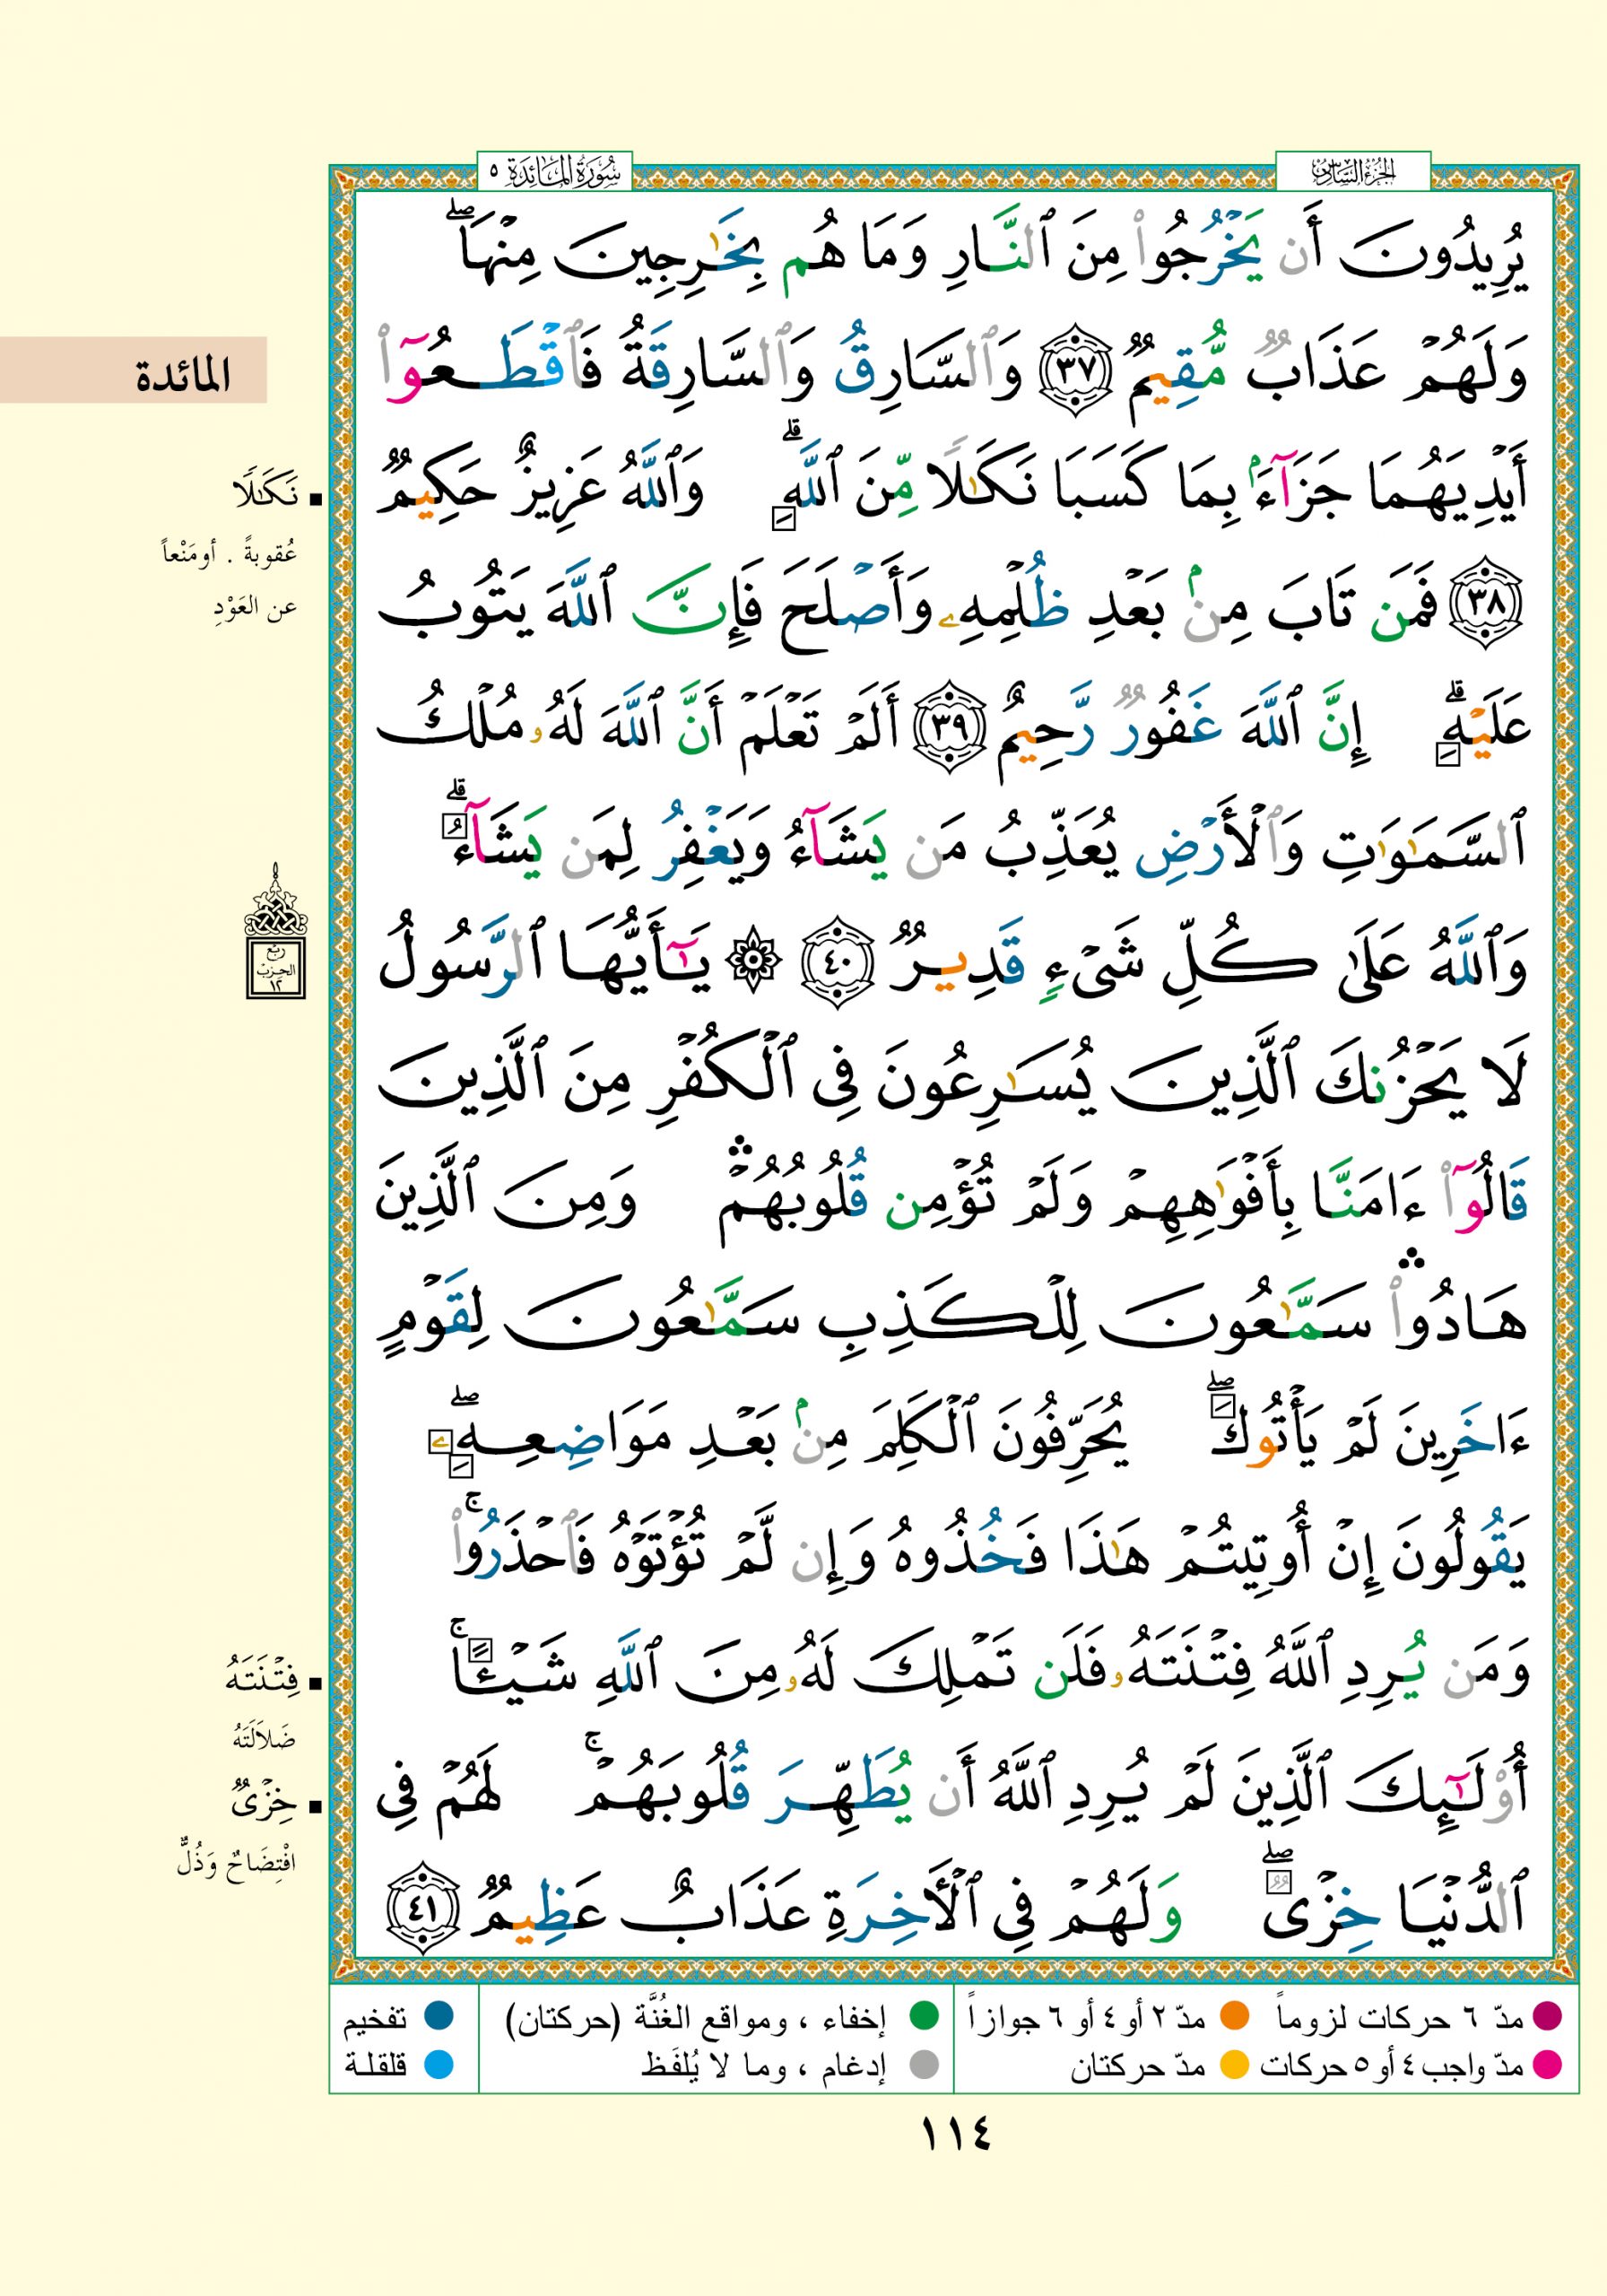 الجزء السادس
سورة المائدة ٥
يُرِيدُونَ أَن يَخْرُجُوا۟ مِنَ ٱلنَّارِ وَمَا هُم بِخَـٰرِجِينَ مِنْهَا ۖ
وَلَهُمْ عَذَابٌ مُّقِيمٌ ٣٧ وَٱلسَّارِقُ وَٱلسَّارِقَةُ فَٱقْطَعُوٓا۟
أَيْدِيَهُمَا جَزَآءًۢ بِمَا كَسَبَا نَكَـٰلًا مِّنَ ٱللَّهِ ۗ وَٱللَّهُ عَزِيزٌ حَكِيمٌ
٣٨ فَمَن تَابَ مِنۢ بَعْدِ ظُلْمِهِۦ وَأَصْلَحَ فَإِنَّ ٱللَّهَ يَتُوبُ
عَلَيْهِ ۗ إِنَّ ٱللَّهَ غَفُورٌ رَّحِيمٌ ٣٩ أَلَمْ تَعْلَمْ أَنَّ ٱللَّهَ لَهُۥ مُلْكُ
ٱلسَّمَـٰوَٰتِ وَٱلْأَرْضِ يُعَذِّبُ مَن يَشَآءُ وَيَغْفِرُ لِمَن يَشَآءُ ۗ
وَٱللَّهُ عَلَىٰ كُلِّ شَىْءٍ قَدِيرٌ ٤٠ ۞ يَـٰٓأَيُّهَا ٱلرَّسُولُ
لَا يَحْزُنكَ ٱلَّذِينَ يُسَـٰرِعُونَ فِى ٱلْكُفْرِ مِنَ ٱلَّذِينَ
قَالُوٓا۟ ءَامَنَّا بِأَفْوَٰهِهِمْ وَلَمْ تُؤْمِن قُلُوبُهُمْ ۛ وَمِنَ ٱلَّذِينَ
هَادُوا۟ ۛ سَمَّـٰعُونَ لِلْكَذِبِ سَمَّـٰعُونَ لِقَوْمٍ
ءَاخَرِينَ لَمْ يَأْتُوكَ ۖ يُحَرِّفُونَ ٱلْكَلِمَ مِنۢ بَعْدِ مَوَاضِعِهِۦ ۖ
يَقُولُونَ إِنْ أُوتِيتُمْ هَـٰذَا فَخُذُوهُ وَإِن لَّمْ تُؤْتَوْهُ فَٱحْذَرُوا۟ ۚ
وَمَن يُرِدِ ٱللَّهُ فِتْنَتَهُۥ فَلَن تَمْلِكَ لَهُۥ مِنَ ٱللَّهِ شَيْـًٔا ۚ
أُو۟لَـٰٓئِكَ ٱلَّذِينَ لَمْ يُرِدِ ٱللَّهُ أَن يُطَهِّرَ قُلُوبَهُمْ ۚ لَهُمْ فِى
ٱلدُّنْيَا خِزْىٌ ۖ وَلَهُمْ فِى ٱلْأَخِرَةِ عَذَابٌ عَظِيمٌ ٤١
المائدة
نَكَـٰلًا
عُقوبةً . أو مَنْعاً
عن العَوْدِ
ربع
الحزب
١٢
فِتْنَتَهُ
ضَلاَلَتَهُ
خِزْىٌ
افْتِضَاحٌ وَذُلٌّ
مدّ ٦ حركات لزوماً مدّ ٢ أو ٤ أو ٦ جوازاً
مدّ واجب ٤ أو ٥ حركات مدّ حركتان
إخفاء ، ومواقع الغُنَّة (حركتان)
إدغام ، وما لا يُلفَظ
تفخيم
قلقلة
١١٤